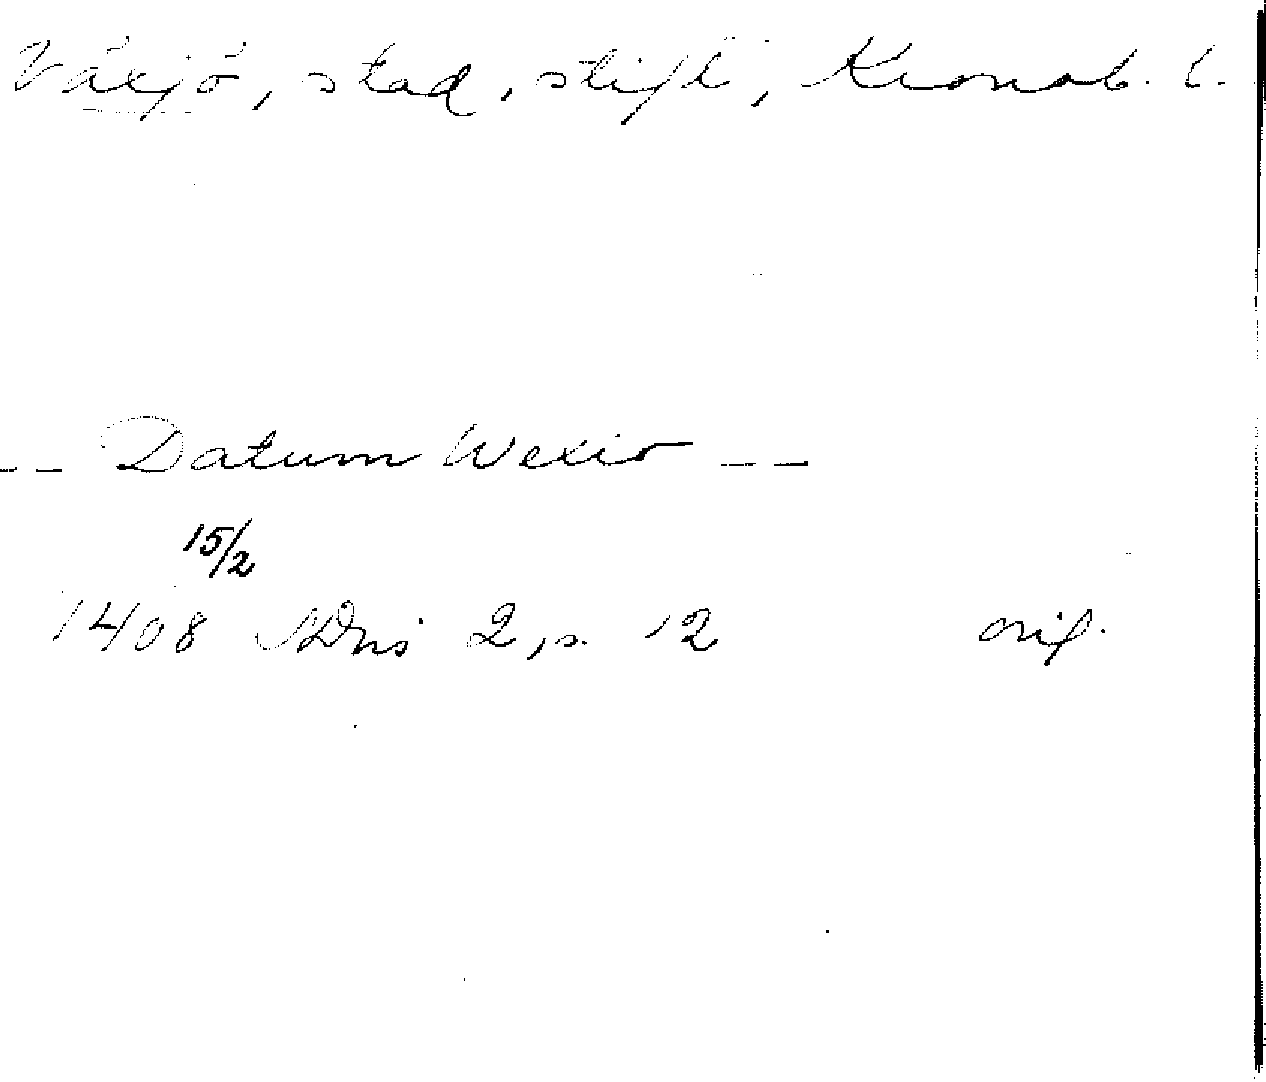 Växjö, stad, stift, Kronob. l.
-- Datum Wexio --
15/2
1408 SDns 2, s. 12 orig.